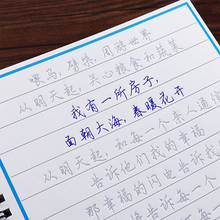 喂马，劈柴，周游世界
从明天起，关心粮食和蔬菜
我有一所房子，
面朝大海，春暖花开
从明天起，和每一个亲人通信
告诉他们我的幸福
那幸福的闪电告诉我的
告诉每一个